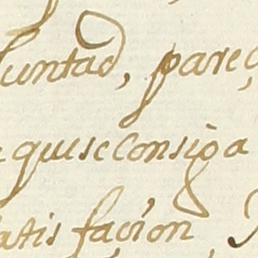 luntad, pareç
quese consiga
atisfaçion,